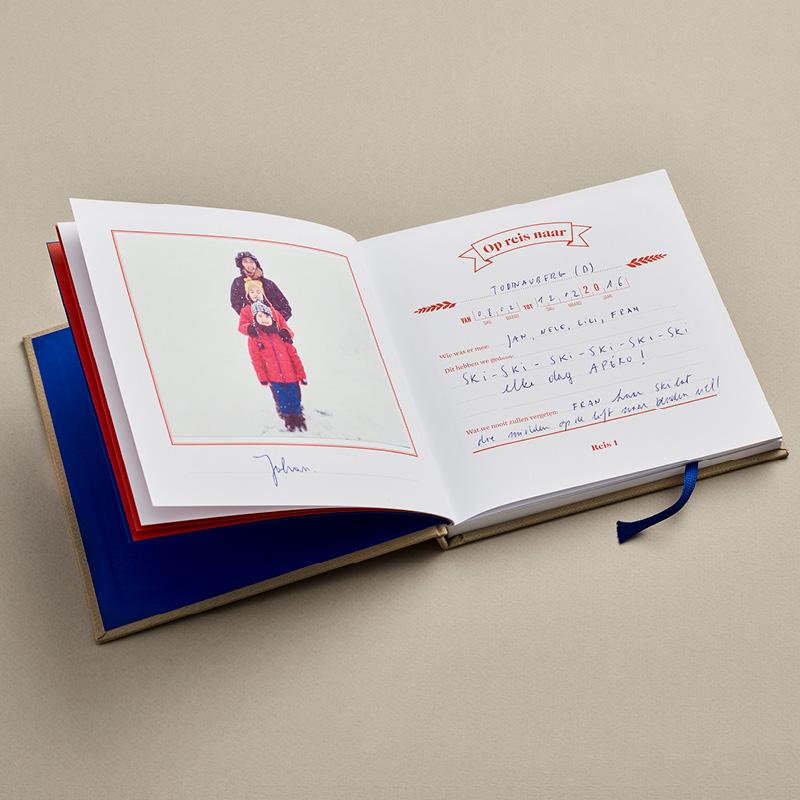 Johan.
Op reis naar
TODTNAUBERG (D)
VAN 08.02 TOT 12.02 2016
DAG MAAND DAG MAAND JAAR
Wie was er mee: JAN, NELE, LILI, FRAN
Dit hebben we gedaan:
SKi - SKi - SKi - SKi - SKi - SKi
elke dag APÉRO!
Wat we nooit zullen vergeten: FRAN haar skilat
die midden op de lift naar beneden viel!
Reis 1